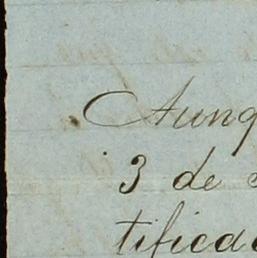 Aunq
3 de
tificad